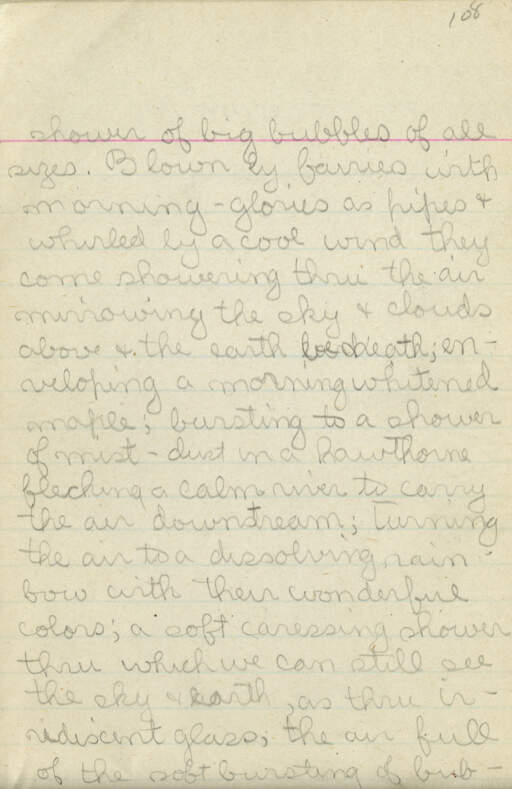 108
shower of big bubbles of all
sizes. Blown by fairies with
morning-glories as pipes &
whirled by a cool wind they
come showering thru the air
mirrowing the sky & clouds
above & the earth beneath; en-
veloping a morning whitened
maple; bursting to a shower
of mist-dust in a hawthorne
flecking a calm river to carry
the air downstream; turning
the air to a dissolving rain-
bow with their wonderful
colors; a soft caressing shower
thru which we can still see
the sky & earth, as thru ir-
ridiscent glass; the air full
of the soft bursting of bub-